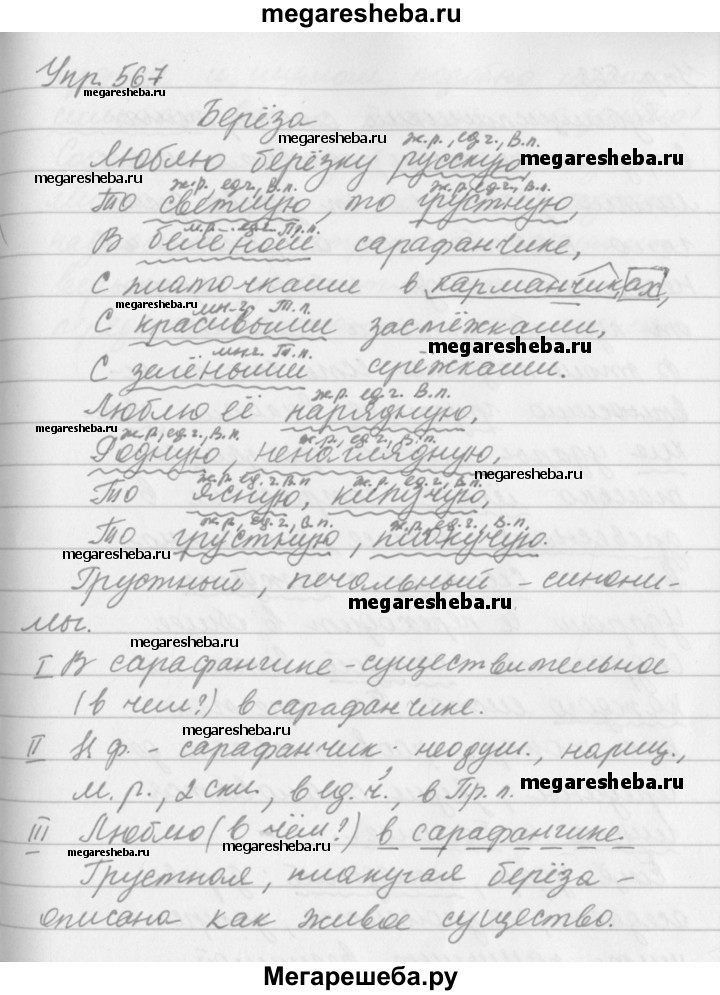 megaresheba.ru
Упр. 567
megaresheba.ru
Берёза
megaresheba.ru
ж.р., ед.ч., В.п.
Люблю берёзку русскую,
megaresheba.ru
megaresheba.ru
ж.р., ед.ч., В.п. ж.р., ед.ч., В.п.
То светлую, то грустную,
м.р. ед.ч., Пр.п.
В белёном сарафанчике,
С платочками в карманчиках,
megaresheba.ru
мн.ч. Т.п.
С красивыми застёжками,
megaresheba.ru
мн.ч. Т.п.
С зелёными серёжками.
ж.р. ед.ч. В.п.
Люблю её нарядную,
megaresheba.ru
ж.р., ед.ч., В.п. ж.р., ед.ч., В.п.
Родную, ненаглядную,
megaresheba.ru
ж.р. ед.ч. В.п ж.р., ед.ч., В.п.
То ясную, кипучую,
ж.р., ед.ч., В.п. ж.р., ед.ч., В.п.
То грустную, плакучую.
megaresheba.ru
Грустный, печальный - синони-
megaresheba.ru
мы.
megaresheba.ru
I В сарафанчике - существительное
(в чем?) в сарафанчике.
megaresheba.ru
II Н.ф. - сарафанчик. неодуш., нариц.,
м.р., 2 скл., в ед.ч., в Пр.п.
megaresheba.ru
III Люблю (в чём?) в сарафанчике.
megaresheba.ru
megaresheba.ru
Грустная, плакучая берёза -
описана как живое существо.
megaresheba.ru
Мегарешеба.ру